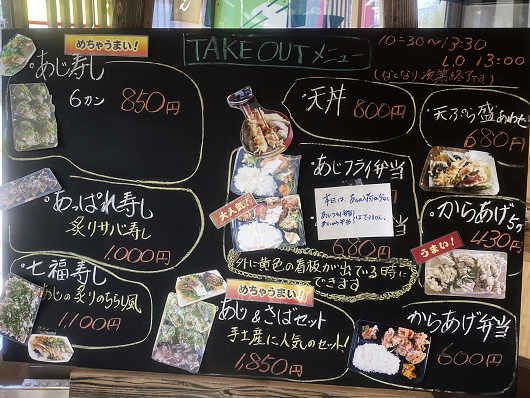 めちゃうまい!
TAKE OUT メニュー
10:30〜13:30
L.O 13:00
(なくなり次第終了です)
・あじ寿し
6カン 850円
・あっぱれ寿し
炙りサバ寿し
1,000円
・七福寿し
あじの炙りのちらし風
1,100円
・天丼
800円
・天ぷら盛あわせ
680円
大人気!
・あじフライ弁当
680円
外に黄色の看板が出ている時に
できます
めちゃうまい!!
・あじ&さばセット
手土産に人気のセット!
1,850円
・からあげ5ケ
430円
うまい!
からあげ弁当
600円